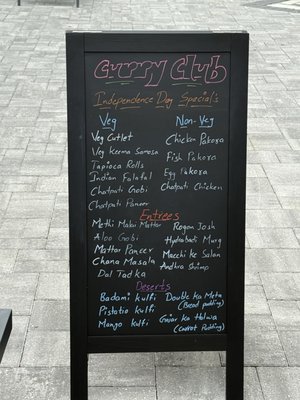 Curry Club
Independence Day Specials
Veg
Veg Cutlet
Veg Keema Samosa
Tapioca Rolls
Indian Falafal
Chatpati Gobi
Chatpati Paneer
Non-Veg
Chicken Pakora
Fish Pakora
Egg Pakora
Chatpati Chicken
Entrees
Methi Malai Mattar
Aloo Gobi
Mattar Paneer
Chana Masala
Dal Tadka
Rogan Josh
Hydrabadi Murg
Macchi Ke Salan
Andhra Shrimp
Deserts
Badami kulfi
Pistatio kulfi
Mango kulfi
Double Ka Meta
(Bead pudding)
Gajar Ka Halwa
(Carrot Pudding)